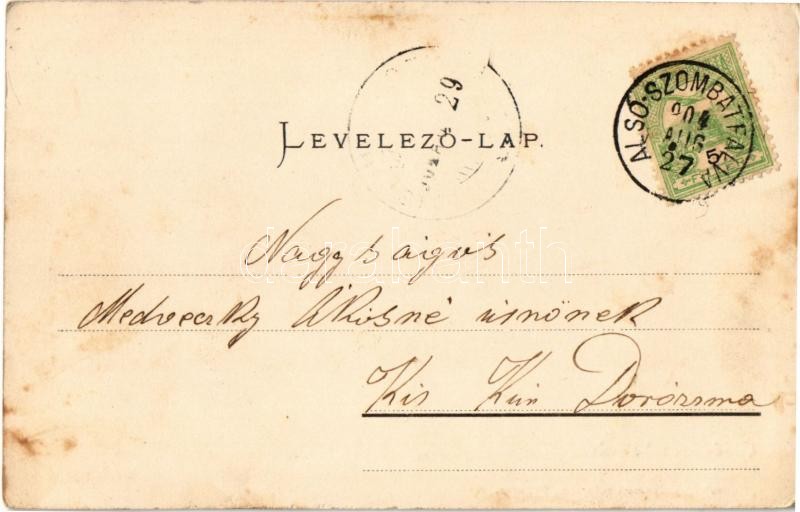 LEVELEZŐ-LAP.
ALSÓ-SZOMBATFALVA
904
AUG
27
29
Nagyságos
Medveczky Ákosné úrnőnek
Kis Kún Dorózsma
darabanth